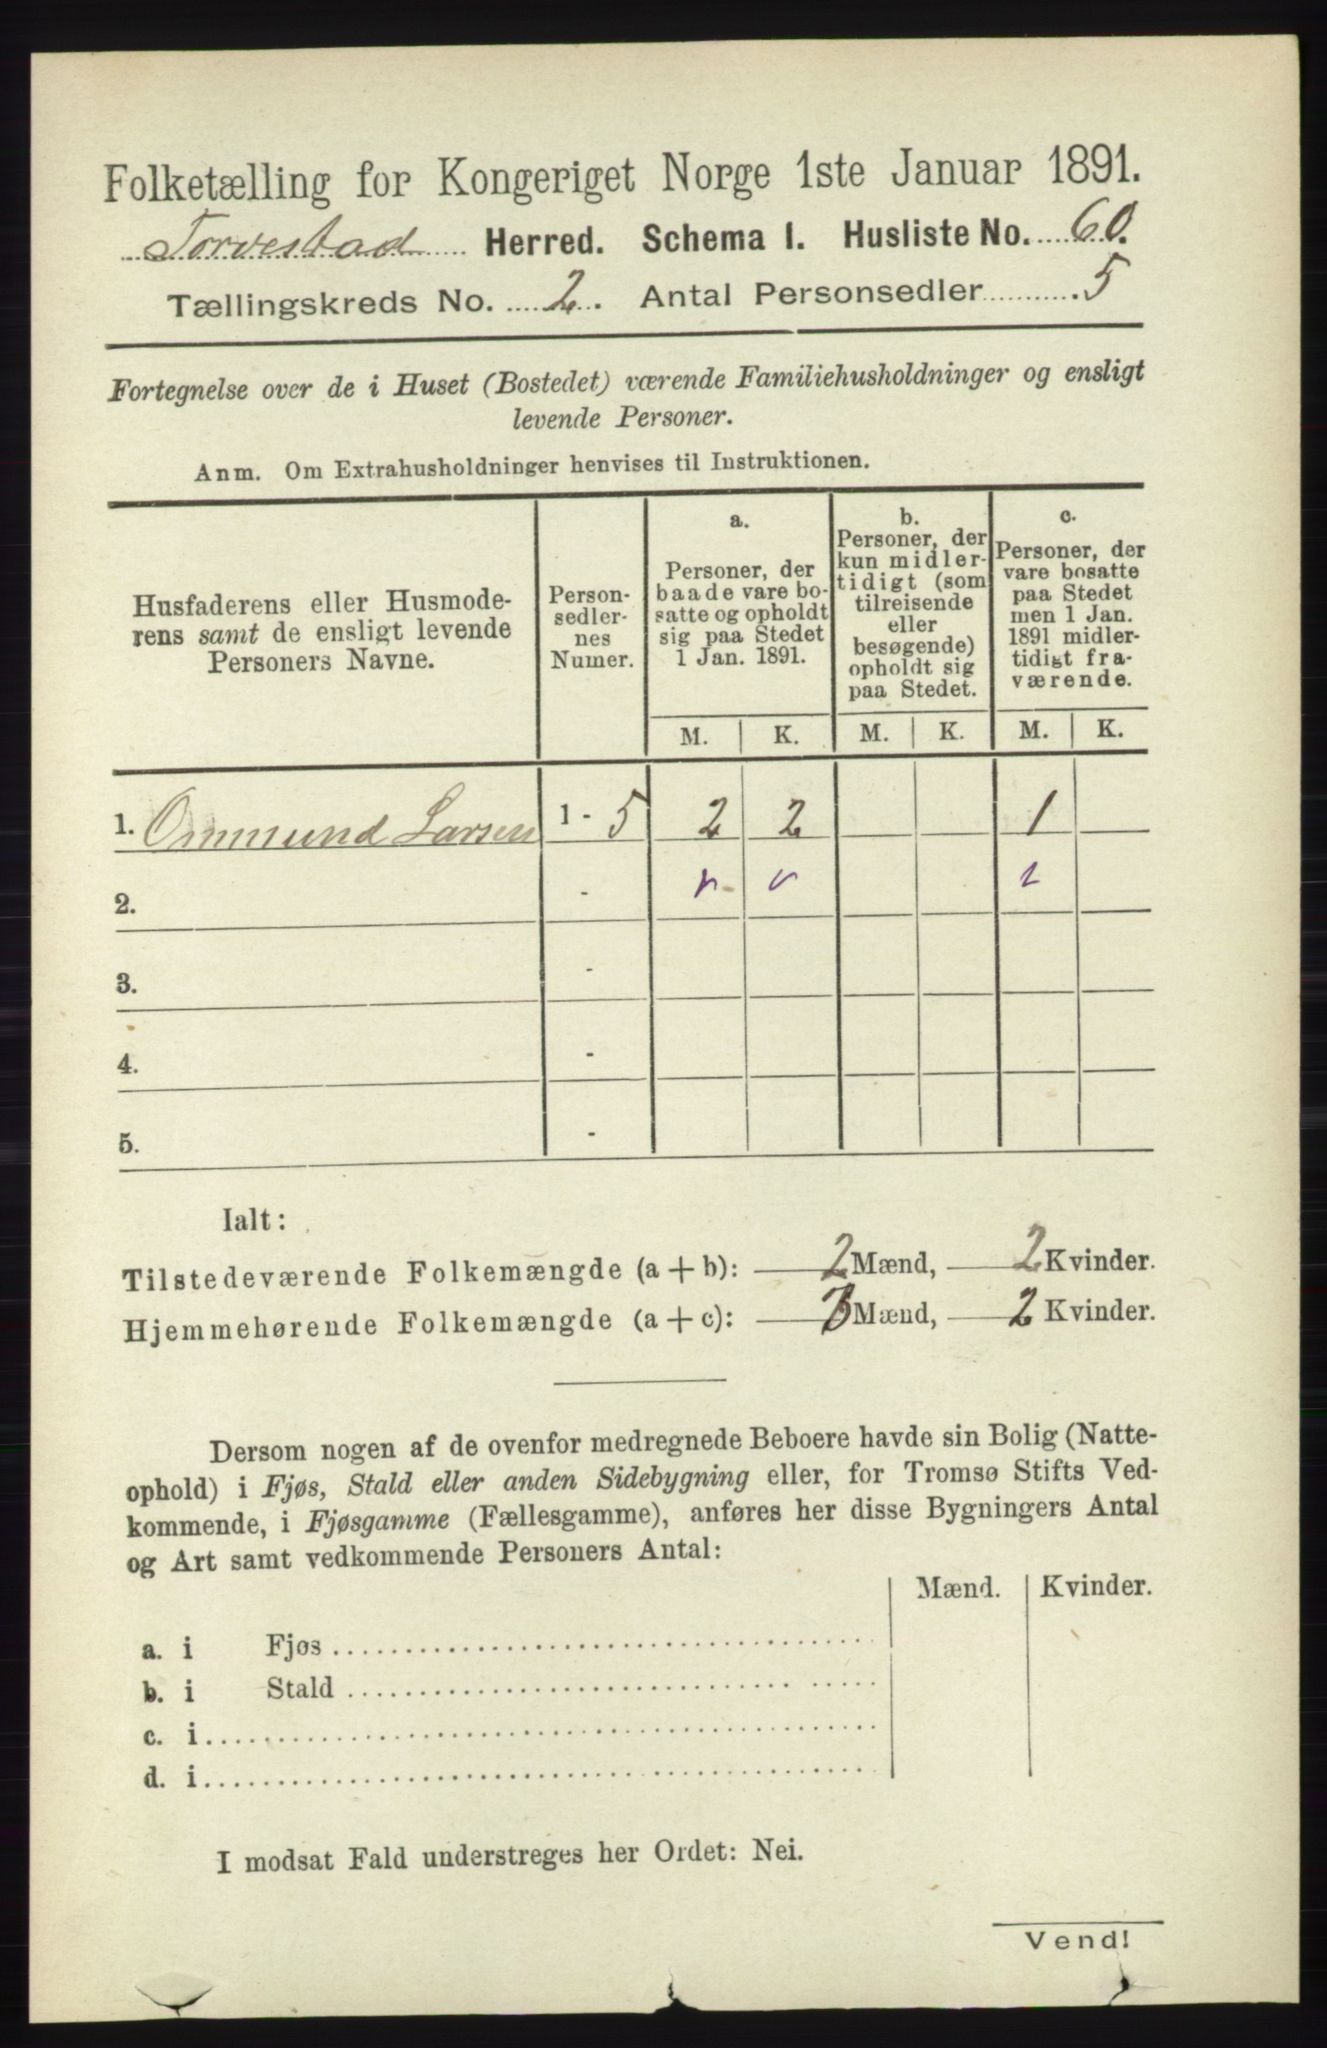 Folketælling for Kongeriget Norge 1ste Januar 1891.
Torvestad Herred. Schema I. Husliste No. 60.
Tællingskreds No. 2. Antal Personsedler 5
Fortegnelse over de i Huset (Bostedet) værende Familiehusholdninger og ensligt
levende Personer.
Anm. Om Extrahusholdninger henvises til Instruktionen.
Husfaderens eller Husmode-
rens samt de ensligt levende
Personers Navne.
Person-
sedler-
nes
Numer.
a.
Personer, der
baade vare bo-
satte og opholdt
sig paa Stedet
1 Jan. 1891.
b.
Personer, der
kun midler-
tidigt (som
tilreisende
eller
besøgende)
opholdt sig
paa Stedet.
c.
Personer, der
vare bosatte
paa Stedet
men 1 Jan.
1891 midler-
tidigt fra-
værende.
M. K. M. K. M. K.
1. Ommund Larsen 1 - 5 2 2 1
2. -
3. -
4. -
5. -
Ialt:
Tilstedeværende Folkemængde (a + b): 2 Mænd, 2 Kvinder.
Hjemmehørende Folkemængde (a + c): 3 Mænd, 2 Kvinder.
Dersom nogen af de ovenfor medregnede Beboere havde sin Bolig (Natte-
ophold) i Fjøs, Stald eller anden Sidebygning eller, for Tromsø Stifts Ved-
kommende, i Fjøsgamme (Fællesgamme), anføres her disse Bygningers Antal
og Art samt vedkommende Personers Antal:
Mænd. Kvinder.
a. i Fjøs
b. i Stald
c. i
d. i
I modsat Fald understreges her Ordet: Nei.
Vend!